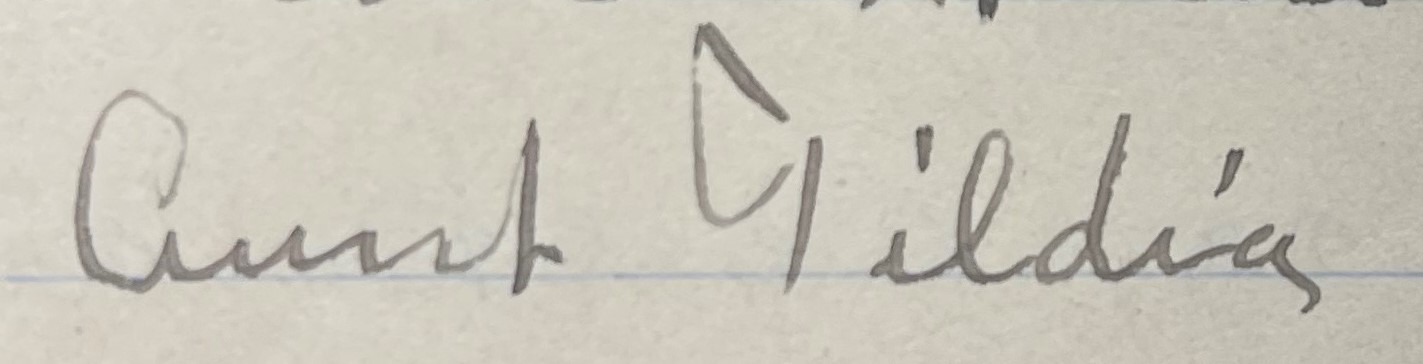 Aunt Tildia